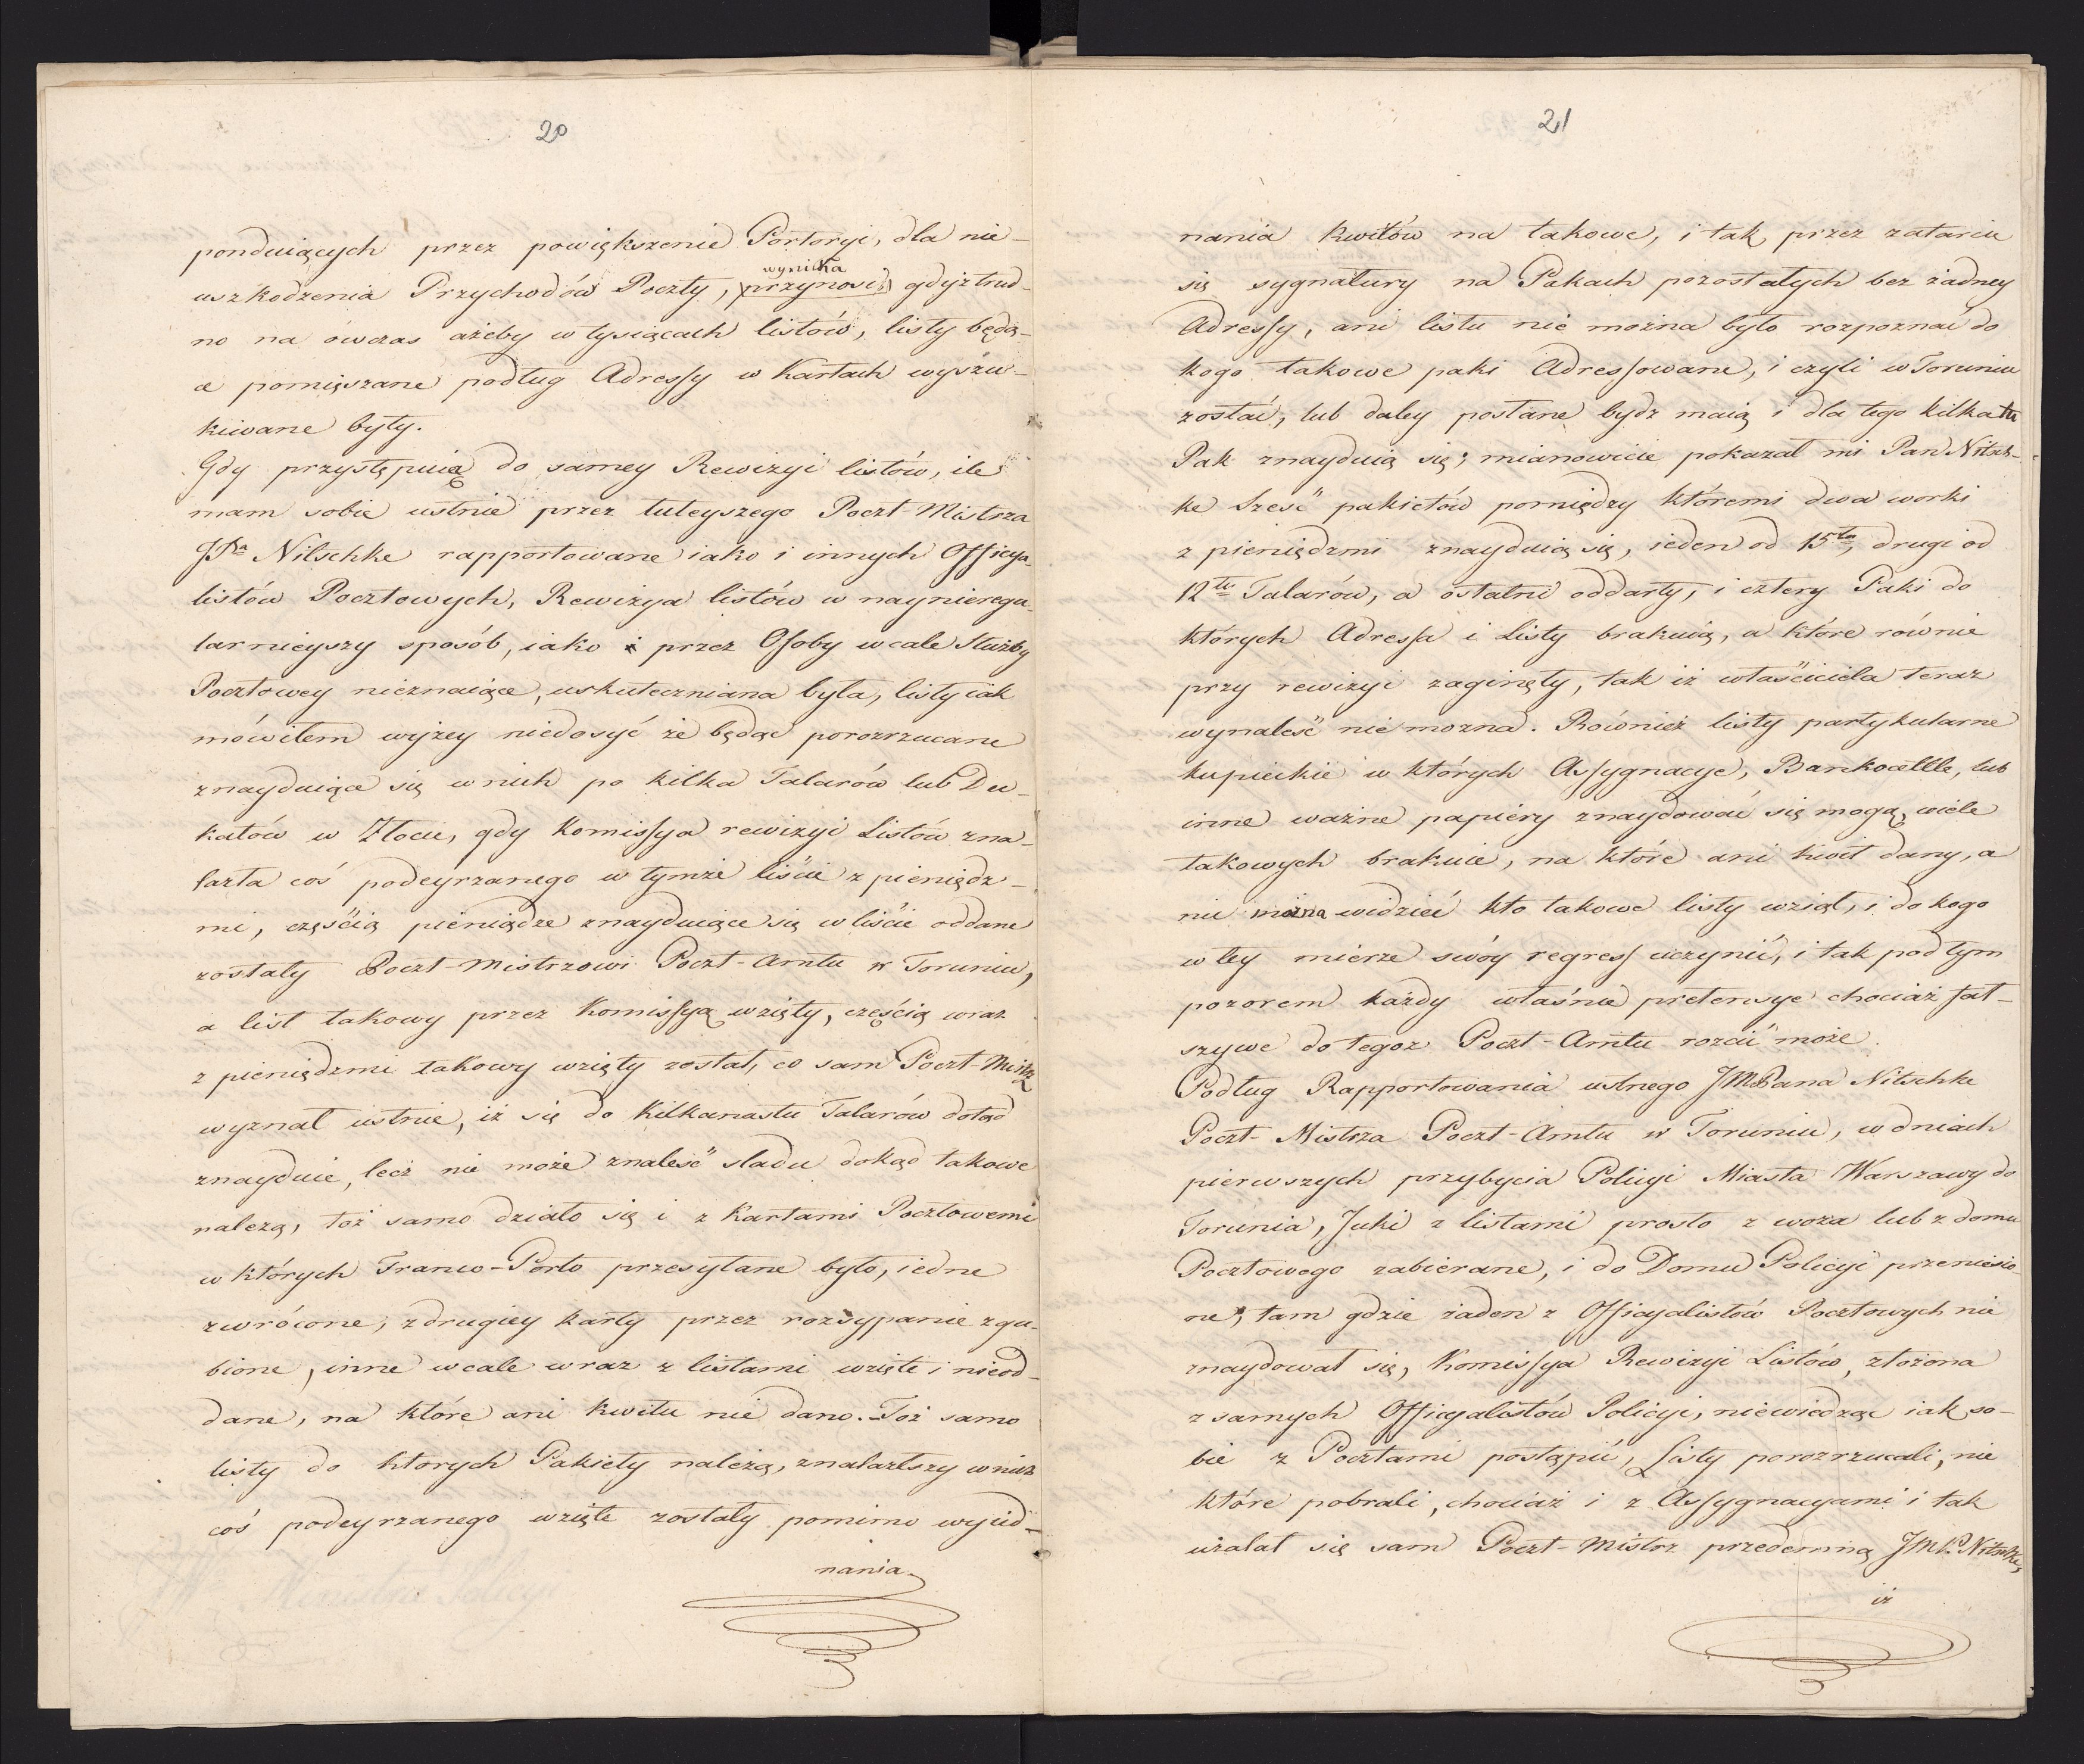 20
ponduiących przez powiększenie Portoryi, dla nie-
wynika
uszkodzenia Przychodów Poczty, (przynosi) gdyż trud-
no na ówczas ażeby w tysiącach listów, listy będą-
ce pomięszane podług Adressy w Kartach wyszu-
kiwane były.
Gdy przystępuię do samey Rewizyi listów, ile
mam sobie ustnie przez tuteyszego Poczt-Mistrza
JPa Nitschke rapportowane iako i innych Officya-
listów Pocztowych, Rewizya listów w naynieregu-
larnieyszy sposób, iako i przez Osoby wcale Służby
Pocztowey nieznaiące, uskuteczniana była, listy iak
mówiłem wyżey niedosyć że będąc porozrzucane
znayduiące się w nich po kilka Talarów lub Du-
katów w Złocie, gdy Komissya rewizyi Listów zna-
lazła coś podeyrzanego w tymże liście z pieniędz-
mi, częścią pieniądze znayduiące się w liście oddane
zostały Poczt-Mistrzowi Poczt-Amtu w Toruniu,
a list takowy przez Komissyą wzięty, częścią wraz
z pieniędzmi takowy wzięty został, co sam Poczt-Mistrz
wyznał ustnie, iż się do Kilkanastu Talarów dotąd
znayduie, lecz nie może znaleść śladu dokąd takowe
należą, toż samo działo się i z Kartami Pocztowemi
w których Franco-Porto przesyłane było, iedne
zwrócone, z drugiey karty przez rozsypanie zgu-
bione, inne wcale wraz z listami wzięte i nieod-
dane, na które ani kwitu nie dano. Toż samo
listy do ktorych Pakiety należą, znalazłszy w nich
coś podeyrzanego wzięte zostały pomimo wyied-
nania
21
nania kwitów na takowe, i tak przez zatarcie
się sygnatury na Pakach pozostałych bez żadney
Adressy, ani listu nie można było rozpoznać do
kogo takowe paki Adressowane, i czyli w Toruniu
zostać, lub daley posłane bydz maią i dla tego kilka tu
Pak znayduią się; mianowicie pokazał mi Pan Nitsch-
ke Sześć pakietów pomiędzy któremi dwa worki
z pieniędzmi znayduią się, ieden od 15tu, drugi od
12tu Talarów, a ostatni oddarty, i cztery Paki do
których Adressa i Listy brakuią, a które równie
przy rewizyi zaginęły, tak iż właściciela teraz
wynaleść nie mozna. Również listy partykularne
kupieckie w których Assygnacye, Bankocetle, lub
inne ważne papiéry znaydować się mogą, wiele
takowych brakuie, na które ani kwit dany, a
nie można widzieć kto takowe listy wziął, i do kogo
w tey mierze swóy regress uczynić, i tak pod tym
pozorem każdy właśnie pretensye chociaż fał-
szywe do tegoz Poczt-Amtu rościć może.
Podług Rapportowania ustnego JMPana Nitschke
Poczt-Mistrza Poczt-Amtu w Toruniu, w dniach
pierwszych przybycia Policyi Miasta Warszawy do
Torunia, Juki z listami prosto z woza lub z domu
Pocztowego zabiérane, i do Domu Policyi przeniesio-
ne, tam gdzie żaden z Officyalistów Pocztowych nie
znaydował się, Komissya Rewizyi Listów, złożona
z samych Officyalistów Policyi, niewiedząc iak so-
bie z Pocztami postąpić, Listy porozrzucali, nie
które pobrali, chociaż i z Assygnacyami i tak
użalał się sam Poczt-Mistrz przedemną JMP. Nitschke,
iż